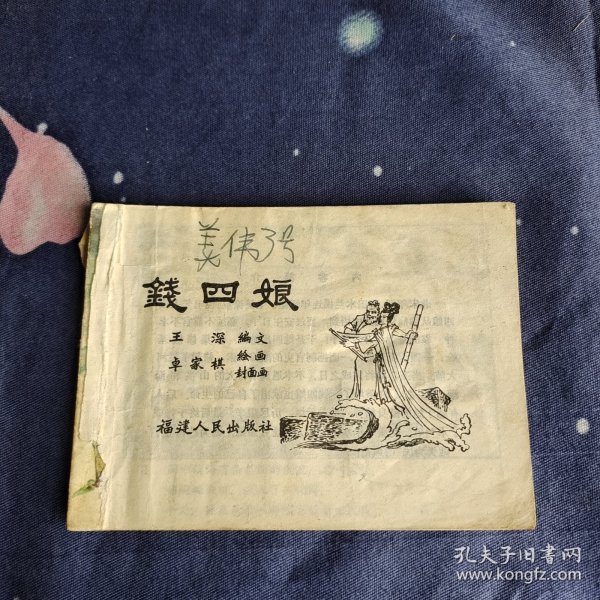 美伟3号
錢四娘
王 深 編文
卓家棋 绘画
封面画
福建人民出版社
孔夫子旧书网
www.kongfz.com